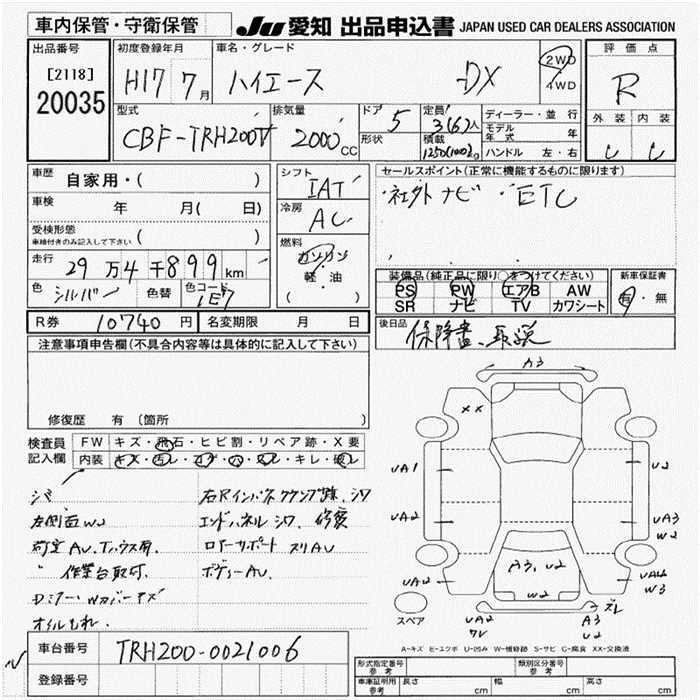 車内保管・守衛保管
JU 愛知 出品申込書 JAPAN USED CAR DEALERS ASSOCIATION
出品番号
[2118]
20035
初度登録年月
H17 7月
車名・グレード
ハイエース DX
2WD
4WD
評価点
R
外装 内装
型式
CBF-TRH200V
排気量
2000 CC
ドア 5
形状
定員 3(6)人
積載 1250(1000)kg
ディーラー・並行
モデル年式 年
ハンドル 左・右
車歴 自家用・( )
車検 年 月( 日)
受検形態
車検付きのみ記入して下さい ( )
走行 29万4千899km
色 シルバー 色替 色コード 1E7
シフト
IAT
冷房
AC
燃料
ガソリン
軽・油
( )
セールスポイント(正常に機能するものに限ります)
社外ナビ ETC
装備品(純正品に限り○をつけてください)
PS PW エアB AW
SR ナビ TV カワシート
新車保証書
有・無
R券 10740円 名変期限 月 日
後日品
保障書、取説
注意事項申告欄(不具合内容等は具体的に記入して下さい)
修復歴 有 (箇所 )
検査員
記入欄
FW キズ・飛石・ヒビ割・リペア跡・X要
内装 キズ・汚レ・コゲ・穴・スレ・キレ・破レ
シミ
左側面W2
荷室AU、Tハウス有
〃 作業台取付
オイルもれ
エンドパネル シワ 修復
ロアーサポート スリAU
ボディーAU
A3
XX
UA1
UA2
U2
UA3
W2
A3, U2
W2
UA2
UA2
ワレ
A3
U2
ズレ
W3
スペア
A-キズ E-エクボ U-凹み W-補修跡 S-サビ C-腐食 XX-交換済
車台番号 TRH200-0021006
登録番号
形式指定番号
参考
類別区分番号
参考
車庫証明用
参考
長さ cm 幅 cm 高さ cm